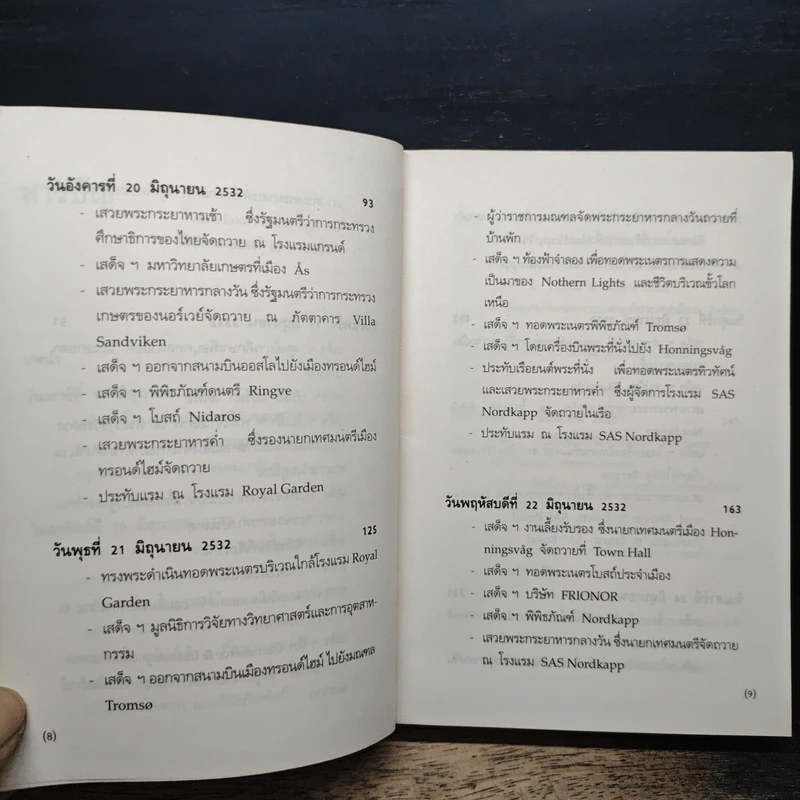 วันอังคารที่ 20 มิถุนายน 2532 93
- เสวยพระกระยาหารเช้า ซึ่งรัฐมนตรีว่าการกระทรวง
ศึกษาธิการของไทยจัดถวาย ณ โรงแรมแกรนด์
- เสด็จ ฯ มหาวิทยาลัยเกษตรที่เมือง Ås
- เสวยพระกระยาหารกลางวัน ซึ่งรัฐมนตรีว่าการกระทรวง
เกษตรของนอร์เวย์จัดถวาย ณ ภัตตาคาร Villa
Sandviken
- เสด็จ ฯ ออกจากสนามบินออสโลไปยังเมืองทรอนด์ไฮม์
- เสด็จ ฯ พิพิธภัณฑ์ดนตรี Ringve
- เสด็จ ฯ โบสถ์ Nidaros
- เสวยพระกระยาหารค่ำ ซึ่งรองนายกเทศมนตรีเมือง
ทรอนด์ไฮม์จัดถวาย
- ประทับแรม ณ โรงแรม Royal Garden
วันพุธที่ 21 มิถุนายน 2532 125
- ทรงพระดำเนินทอดพระเนตรบริเวณใกล้โรงแรม Royal
Garden
- เสด็จ ฯ มูลนิธิการวิจัยทางวิทยาศาสตร์และการอุตสาห-
กรรม
- เสด็จ ฯ ออกจากสนามบินเมืองทรอนด์ไฮม์ ไปยังมณฑล
Tromsø
(8)
- ผู้ว่าราชการมณฑลจัดพระกระยาหารกลางวันถวายที่
บ้านพัก
- เสด็จ ฯ ท้องฟ้าจำลอง เพื่อทอดพระเนตรการแสดงความ
เป็นมาของ Nothern Lights และชีวิตบริเวณขั้วโลก
เหนือ
- เสด็จ ฯ ทอดพระเนตรพิพิธภัณฑ์ Tromsø
- เสด็จ ฯ โดยเครื่องบินพระที่นั่งไปยัง Honningsvåg
- ประทับเรือยนต์พระที่นั่ง เพื่อทอดพระเนตรทิวทัศน์
และเสวยพระกระยาหารค่ำ ซึ่งผู้จัดการโรงแรม SAS
Nordkapp จัดถวายในเรือ
- ประทับแรม ณ โรงแรม SAS Nordkapp
วันพฤหัสบดีที่ 22 มิถุนายน 2532 163
- เสด็จ ฯ งานเลี้ยงรับรอง ซึ่งนายกเทศมนตรีเมือง Hon-
ningsvåg จัดถวายที่ Town Hall
- เสด็จ ฯ ทอดพระเนตรโบสถ์ประจำเมือง
- เสด็จ ฯ บริษัท FRIONOR
- เสด็จ ฯ พิพิธภัณฑ์ Nordkapp
- เสวยพระกระยาหารกลางวัน ซึ่งนายกเทศมนตรีจัดถวาย
ณ โรงแรม SAS Nordkapp
(9)